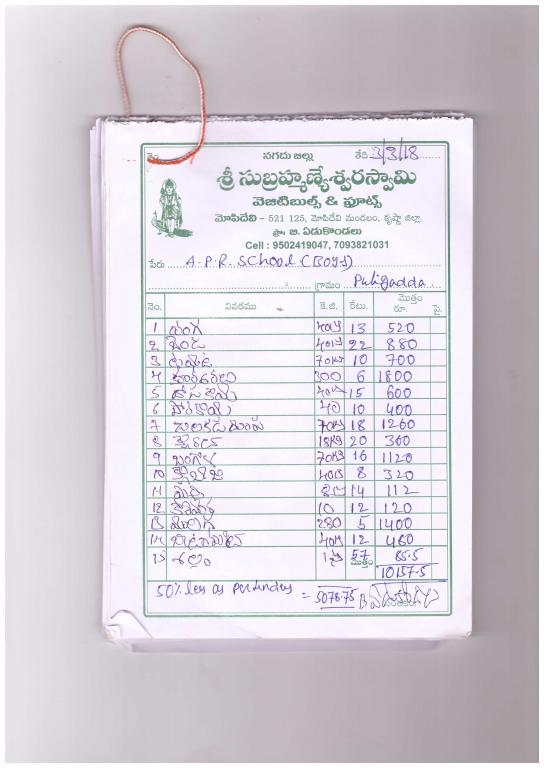 నెం. నగదు బిల్లు తేది 3/3/18
శ్రీ సుబ్రహ్మణ్యేశ్వరస్వామి
వెజిటబుల్స్ & ఫ్రూట్స్
మోపిదేవి - 521 125, మోపిదేవి మండలం, కృష్ణా జిల్లా.
ప్రొ. బి. ఏడుకొండలు
Cell : 9502419047, 7093821031
పేరు A.P.R. School (Boys)
గ్రామం Puligadda
నెం. వివరము కె.జి. రేటు. మొత్తం రూ. పై.
1 వంగ 40kg 13 520
2 బెండ 40kg 22 880
3 70kg 10 700
4 300 6 1800
5 దోసకాయ 40kg 15 600
6 40 10 400
7 70kg 18 1260
8 క్యారెట్ 18kg 20 360
9 70kg 16 1120
10 40kg 8 320
11 14 112
12 10 12 120
13 280 5 1400
14 40kg 12 480
15 అల్లం 57 85.5
మొత్తం 10157.5
50% les as per = 5078.75